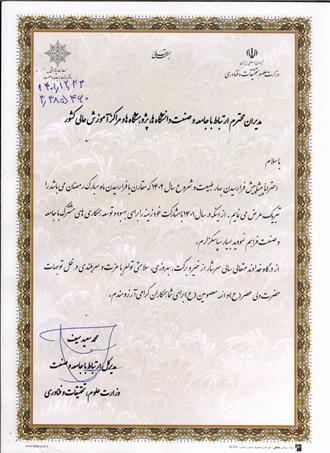 بسمه تعالی
جمهوری اسلامی ایران
وزارت علوم، تحقیقات و فناوری
۱۴۰۱/۱۲/۲۳
۳,۳۸۵۴۶۰
مدیران محترم ارتباط با جامعه و صنعت دانشگاه ها، پژوهشگاه ها و مراکز آموزش عالی کشور
با سلام
احتراما پیشاپیش فرا رسیدن بهار طبیعت و شروع سال ۱۴۰۲ که مقارن با فرا رسیدن ماه مبارک رمضان می باشد را
تبریک عرض می نمایم. از اینکه در سال ۱۴۰۱ با مشارکت خود زمینه را برای بهبود و توسعه همکاری های مشترک با جامعه
و صنعت فراهم نمودید بسیار سپاسگزارم.
از درگاه خداوند متعال سالی سرشار از خیر و برکت، بهروزی، سلامتی توأم با عزت و سربلندی در ظل توجهات
حضرت ولی عصر (ع) و ائمه معصومین (ع) برای شما همکاران گرامی آرزومندم.
محمد سعید سیف
مدیرکل ارتباط با جامعه و صنعت
وزارت علوم، تحقیقات و فناوری